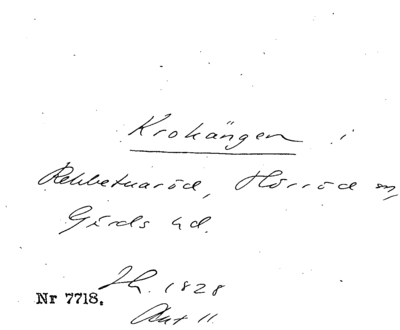 Krokängen i
Rebbetuaröd, Hörröd sn,
Gärds hd.
Nr 7718.
1828
Akt 11.